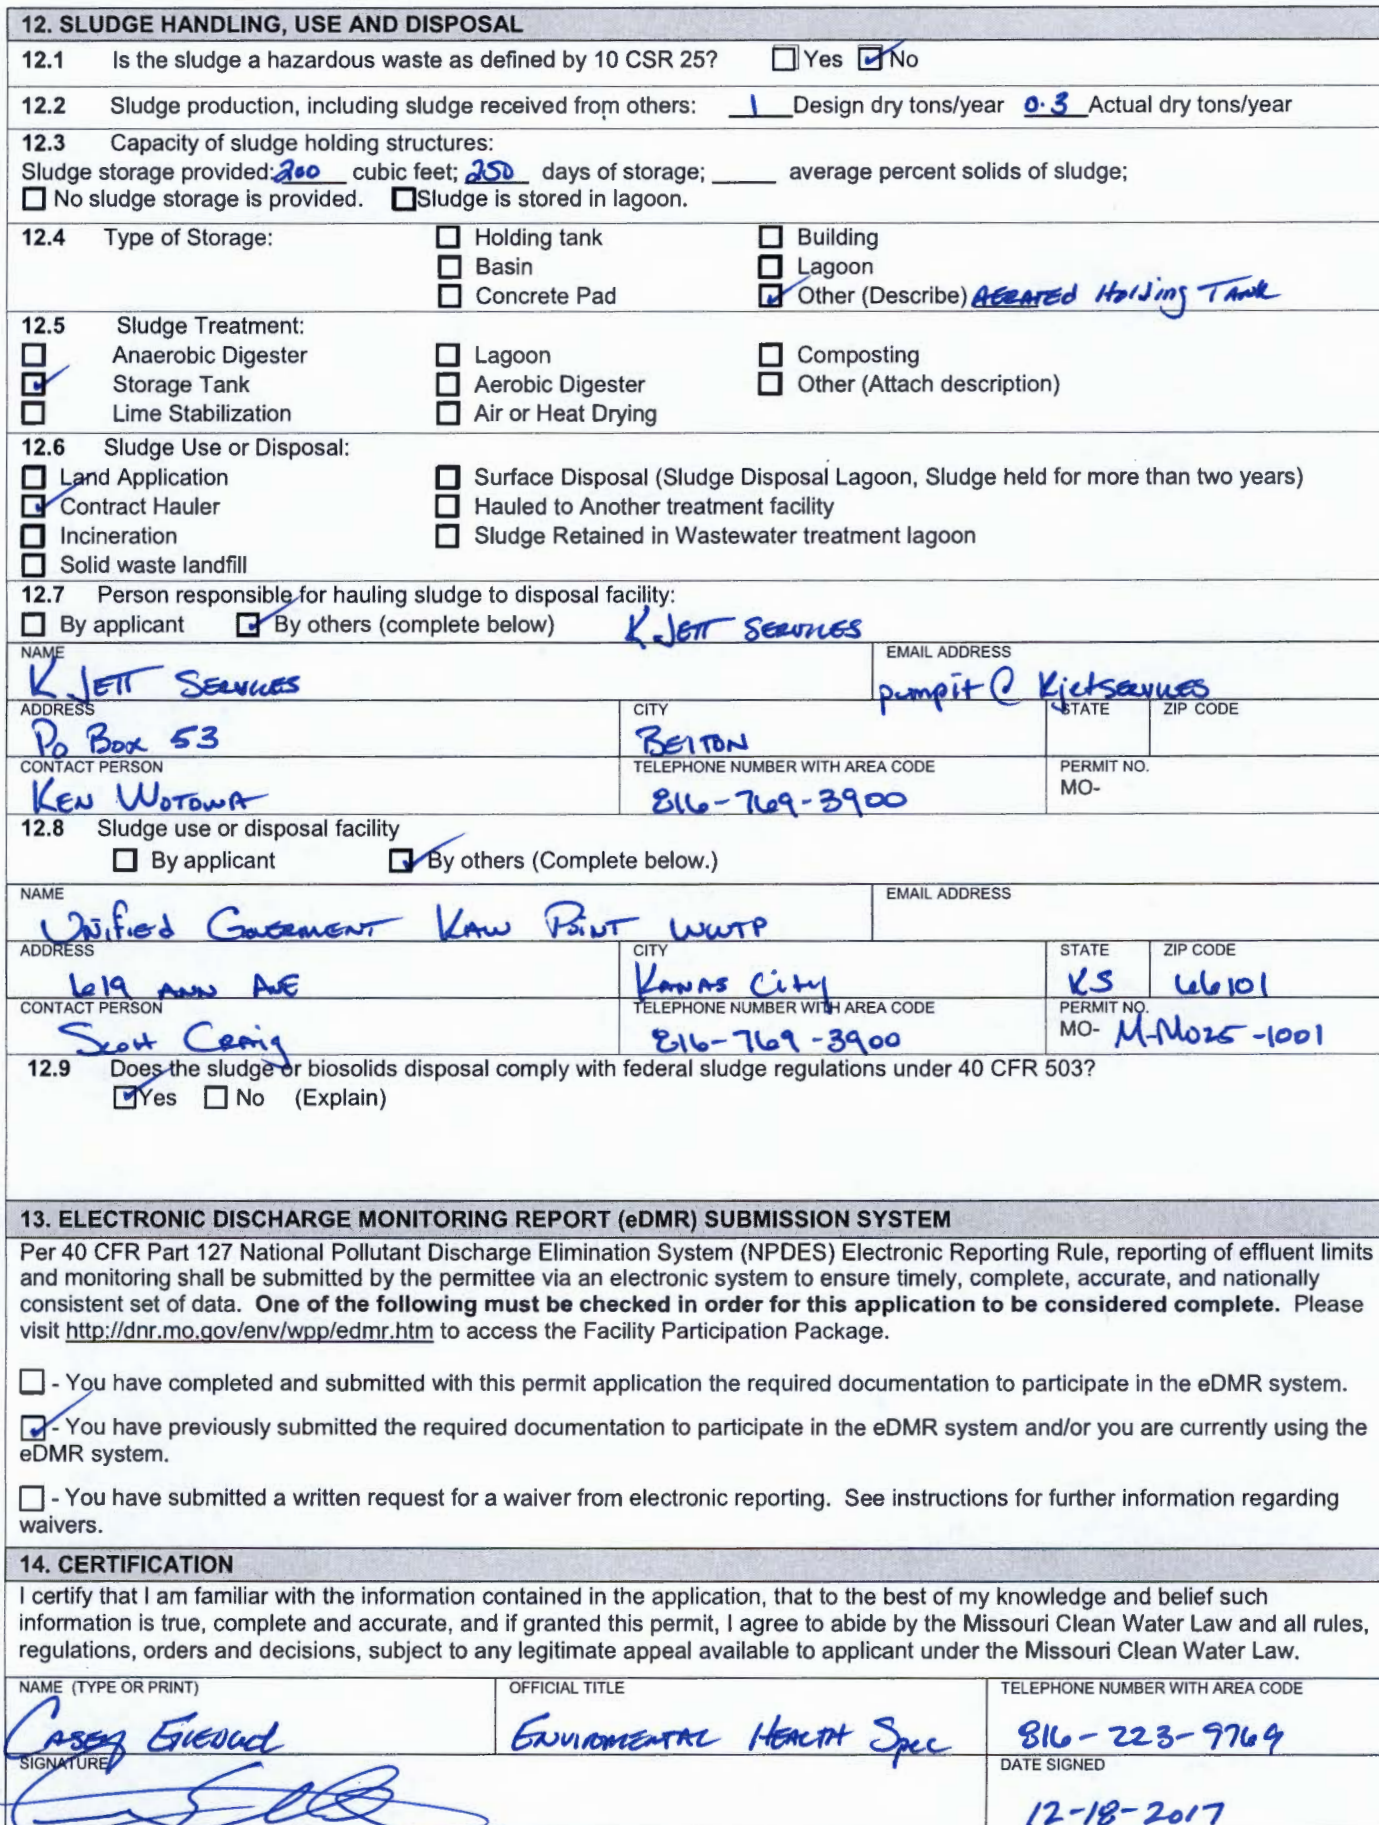 12. SLUDGE HANDLING, USE AND DISPOSAL
12.1 Is the sludge a hazardous waste as defined by 10 CSR 25? ☐ Yes ☑ No
12.2 Sludge production, including sludge received from others: 1 Design dry tons/year 0.3 Actual dry tons/year
12.3 Capacity of sludge holding structures:
Sludge storage provided: 200 cubic feet; 250 days of storage; _____ average percent solids of sludge;
☐ No sludge storage is provided. ☐ Sludge is stored in lagoon.
12.4 Type of Storage: ☐ Holding tank ☐ Building
☐ Basin ☐ Lagoon
☐ Concrete Pad ☑ Other (Describe) AERATED Holding TANK
12.5 Sludge Treatment:
☐ Anaerobic Digester ☐ Lagoon ☐ Composting
☑ Storage Tank ☐ Aerobic Digester ☐ Other (Attach description)
☐ Lime Stabilization ☐ Air or Heat Drying
12.6 Sludge Use or Disposal:
☐ Land Application ☐ Surface Disposal (Sludge Disposal Lagoon, Sludge held for more than two years)
☑ Contract Hauler ☐ Hauled to Another treatment facility
☐ Incineration ☐ Sludge Retained in Wastewater treatment lagoon
☐ Solid waste landfill
12.7 Person responsible for hauling sludge to disposal facility:
☐ By applicant ☑ By others (complete below) K JETT SERVICES
NAME EMAIL ADDRESS
K JETT SERVICES pumpit @ Kjetservices
ADDRESS CITY STATE ZIP CODE
Po Box 53 BELTON
CONTACT PERSON TELEPHONE NUMBER WITH AREA CODE PERMIT NO.
KEN WOTOWA 816-769-3900 MO-
12.8 Sludge use or disposal facility
☐ By applicant ☑ By others (Complete below.)
NAME EMAIL ADDRESS
Unified Goverment KAW Point WWTP
ADDRESS CITY STATE ZIP CODE
619 ANN AVE KANAS City KS 66101
CONTACT PERSON TELEPHONE NUMBER WITH AREA CODE PERMIT NO.
Scott Craig 816-769-3900 MO- M-MO25-1001
12.9 Does the sludge or biosolids disposal comply with federal sludge regulations under 40 CFR 503?
☑ Yes ☐ No (Explain)
13. ELECTRONIC DISCHARGE MONITORING REPORT (eDMR) SUBMISSION SYSTEM
Per 40 CFR Part 127 National Pollutant Discharge Elimination System (NPDES) Electronic Reporting Rule, reporting of effluent limits
and monitoring shall be submitted by the permittee via an electronic system to ensure timely, complete, accurate, and nationally
consistent set of data. One of the following must be checked in order for this application to be considered complete. Please
visit http://dnr.mo.gov/env/wpp/edmr.htm to access the Facility Participation Package.
☐ - You have completed and submitted with this permit application the required documentation to participate in the eDMR system.
☑ - You have previously submitted the required documentation to participate in the eDMR system and/or you are currently using the
eDMR system.
☐ - You have submitted a written request for a waiver from electronic reporting. See instructions for further information regarding
waivers.
14. CERTIFICATION
I certify that I am familiar with the information contained in the application, that to the best of my knowledge and belief such
information is true, complete and accurate, and if granted this permit, I agree to abide by the Missouri Clean Water Law and all rules,
regulations, orders and decisions, subject to any legitimate appeal available to applicant under the Missouri Clean Water Law.
NAME (TYPE OR PRINT) OFFICIAL TITLE TELEPHONE NUMBER WITH AREA CODE
CASEY ENVIROMENTAL HEALTH Spec 816-223-9769
SIGNATURE DATE SIGNED
12-18-2017